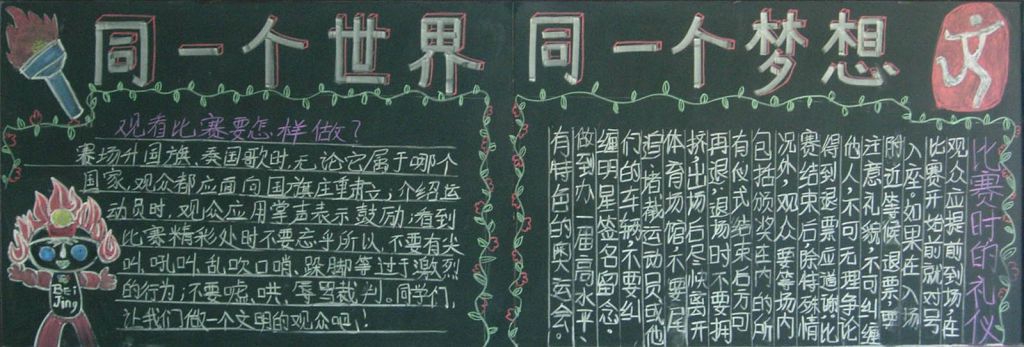 同一个世界 同一个梦想
观看比赛要怎样做?
赛场升国旗、奏国歌时,无论它属于哪个
国家,观众都应面向国旗庄重肃立,介绍运
动员时,观众应用掌声表示鼓励;看到
比赛精彩处时不要忘乎所以,不要有尖
叫、吼叫、乱吹口哨、跺脚等过于激烈
的行为;不要嘘、哄、辱骂裁判。同学们,
让我们做一个文明的观众吧!
Bei
Jing
比赛时的礼仪
观众应提前到场,在
比赛开始前就对号
入座。如果在入场
附近等候、退票要
注意礼貌,不可纠缠
他人,不可无理争论
得到退票应道谢;比
赛结束后,除特殊情
况外,观众要等场内
包括颁奖在内的所
有仪式结束后方可
再退;退场时不要拥
挤,出场后尽快离开
体育场馆,不要尾
追、堵截运动员或他
们的车辆,不要纠
缠明星签名留念。
做到办一届高水平、
有特色的奥运会。